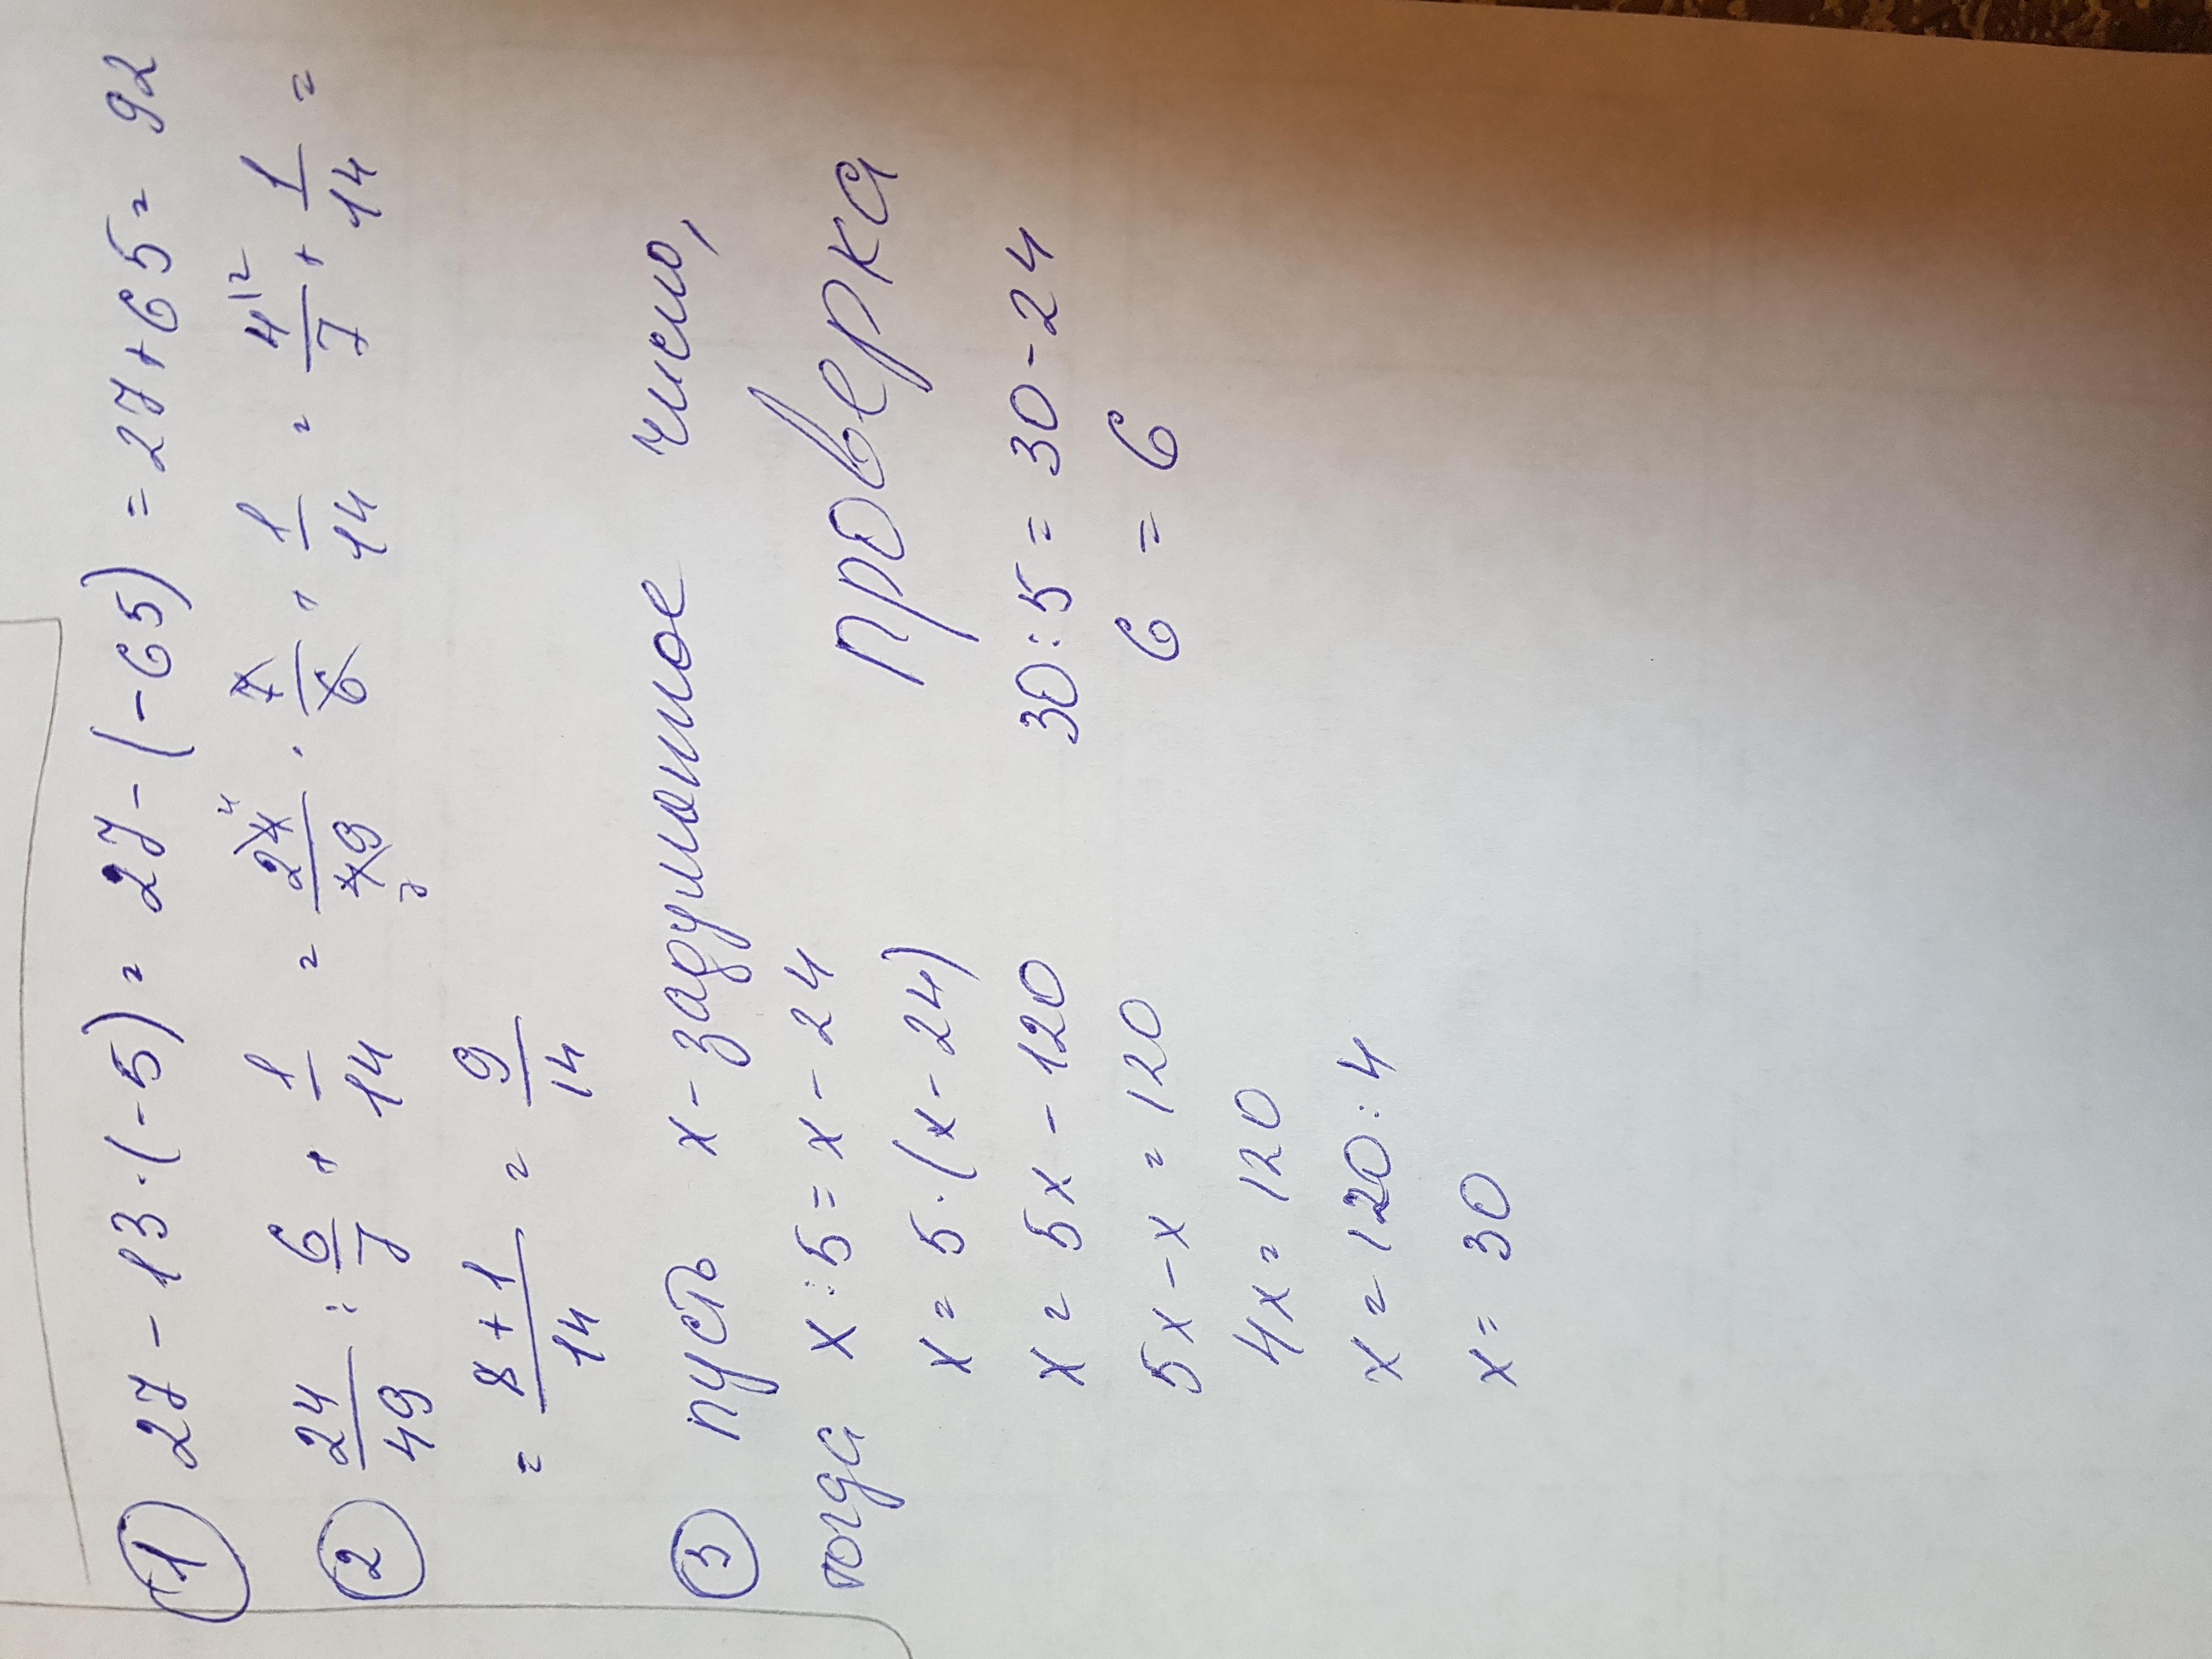 ① 27 - 13 · (-5) = 27 - (-65) = 27 + 65 = 92
② 24/49 : 6/7 + 1/14 = 24⁴/49₇ · 7/6 + 1/14 = 4^{12}/7 + 1/14 =
= 8+1/14 = 9/14
③ пусть x - задуманное число,
тогда x : 5 = x - 24
x = 5 · (x - 24)
x = 5x - 120
5x - x = 120
4x = 120
x = 120 : 4
x = 30
проверка
30 : 5 = 30 - 24
6 = 6